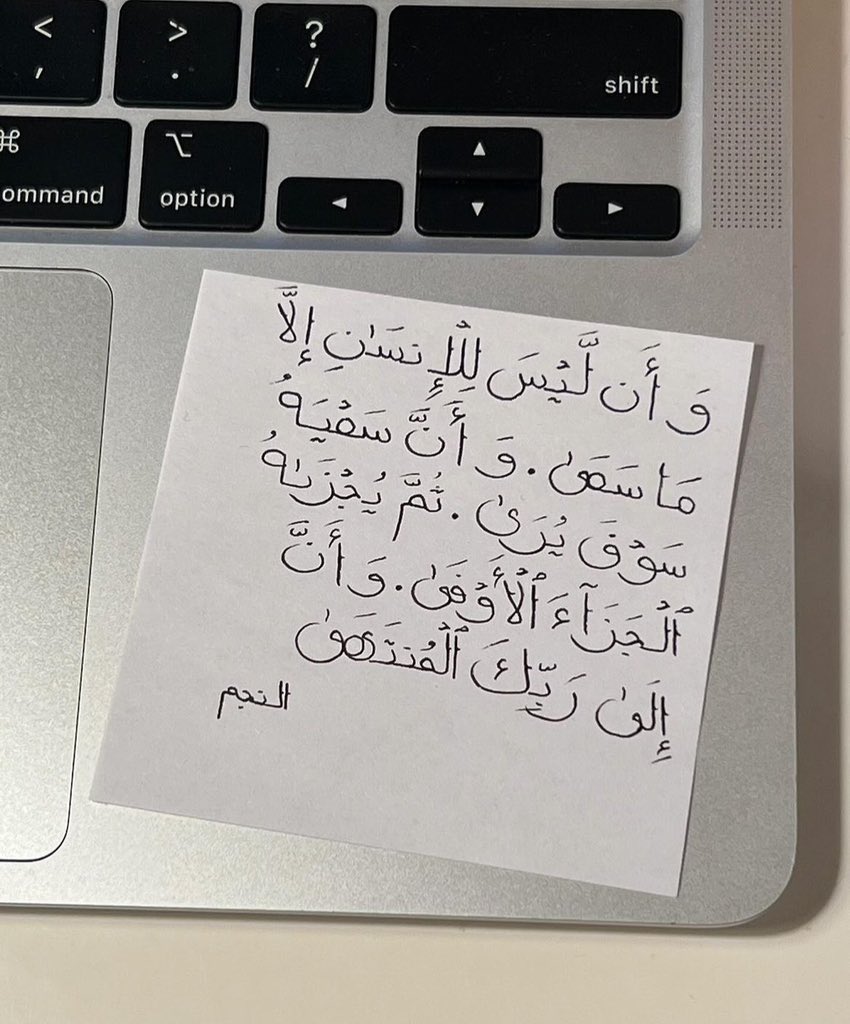 <
,
>
.
?
/
shift
⌘
ommand
⌥
option
◄
▲
▼
►
وَ أَن لَّيْسَ لِلْإِنسَٰنِ إِلَّا
مَا سَعَىٰ . وَ أَنَّ سَعْيَهُ
سَوْفَ يُرَىٰ . ثُمَّ يُجْزَىٰهُ
ٱلْجَزَآءَ ٱلْأَوْفَىٰ . وَ أَنَّ
إِلَىٰ رَبِّكَ ٱلْمُنتَهَىٰ
النجم